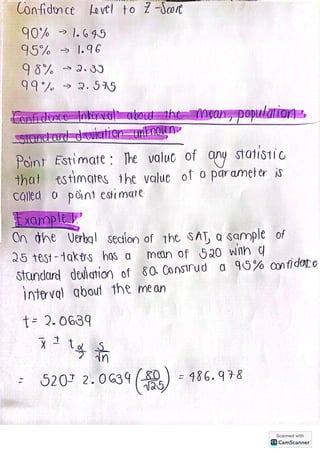 Confidence Level to Z-Score
90% → 1.645
95% → 1.96
98% → 2.33
99% → 2.575
Confidence Interval about the mean, population
standard deviation unknown
Point Estimate: The value of any statistic
that estimates the value of a parameter is
called a point estimate
Example 1
On the Verbal section of the SAT, a sample of
25 test-takers has a mean of 520 with a
standard deviation of 80. Construct a 95% confidence
interval about the mean
t = 2.0639
x̄ ± t α/2 s/√n
= 520 ± 2.0639 (80/√25) = 486.978
Scanned with
CS CamScanner